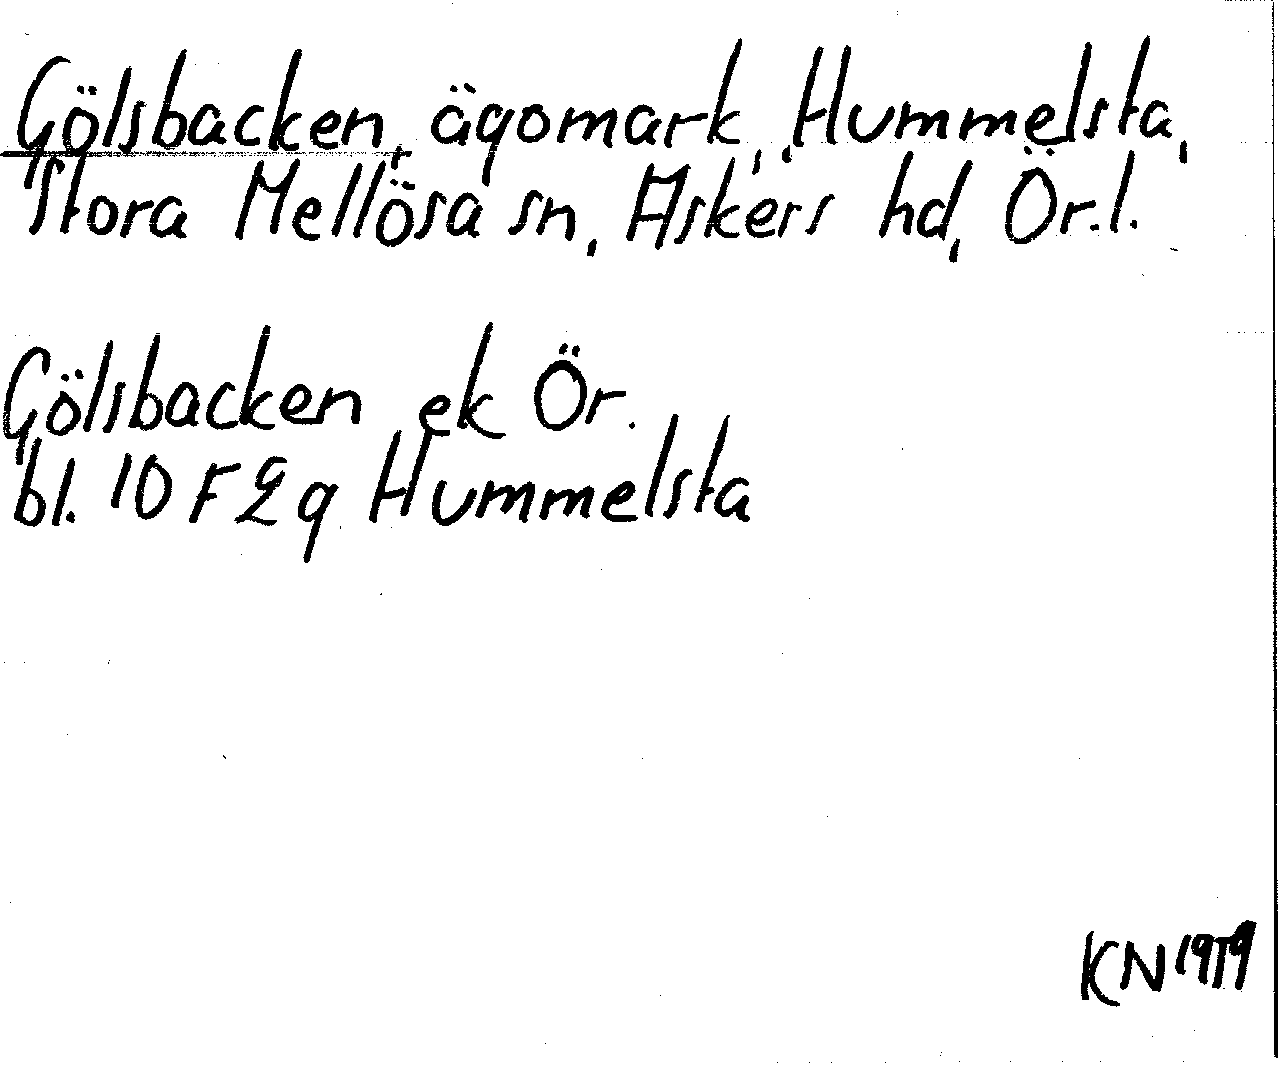 Gölsbacken, ägomark, Hummelsta,
Stora Mellösa sn, Askers hd, Ör.l.
Gölsbacken ek Ör.
bl. 10 F 2 g Hummelsta
KN 1979